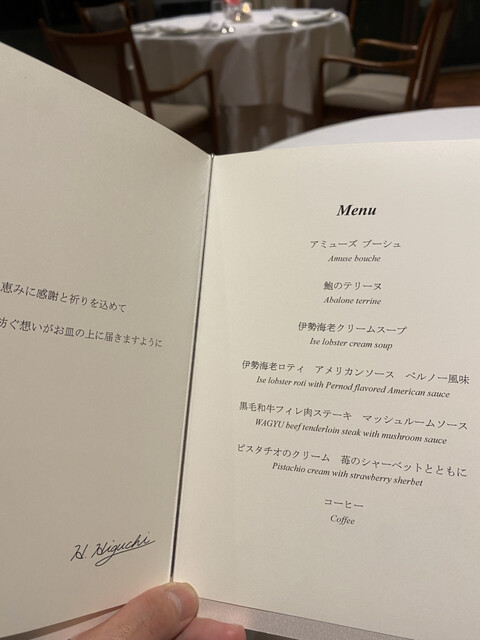 恵みに感謝と祈りを込めて
紡ぐ想いがお皿の上に届きますように
H. Higuchi
Menu
アミューズ ブーシュ
Amuse bouche
鮑のテリーヌ
Abalone terrine
伊勢海老クリームスープ
Ise lobster cream soup
伊勢海老ロティ　アメリカンソース　ペルノー風味
Ise lobster roti with Pernod flavored American sauce
黒毛和牛フィレ肉ステーキ　マッシュルームソース
WAGYU beef tenderloin steak with mushroom sauce
ピスタチオのクリーム　苺のシャーベットとともに
Pistachio cream with strawberry sherbet
コーヒー
Coffee